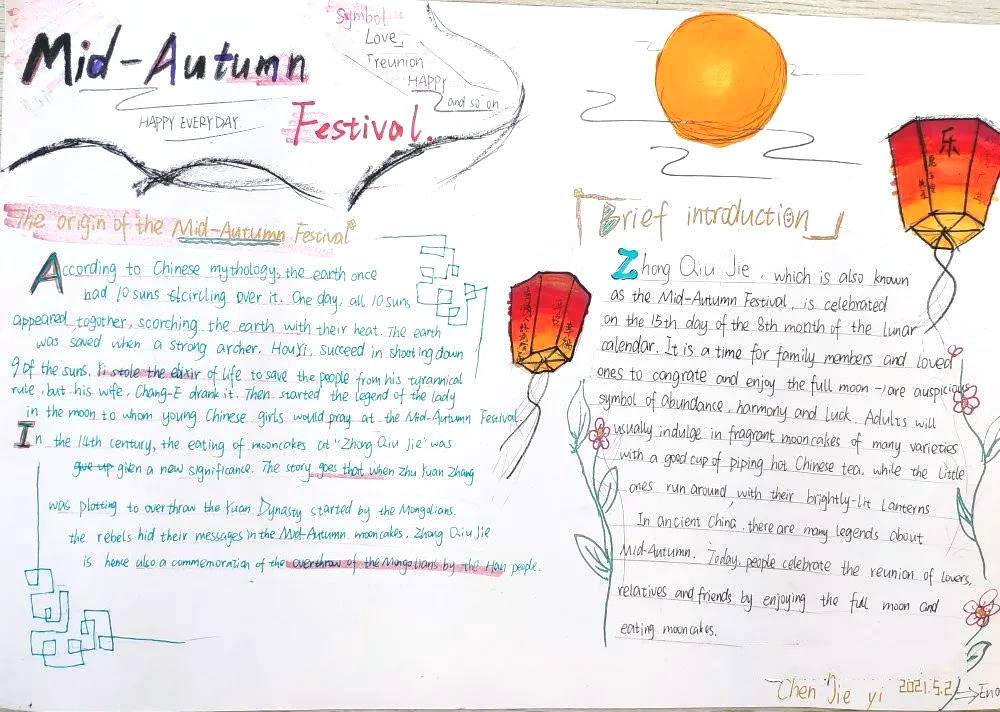 Mid-Autumn
Festival.
HAPPY EVERYDAY
Symbol
Love
reunion
HAPPY
and so on
The origin of the Mid-Autumn Festival
According to Chinese mythology, the earth once
had 10 suns circling over it. One day, all 10 suns
appeared together, scorching the earth with their heat. The earth
was saved when a strong archer, HouYi, succeed in shooting down
9 of the suns. Yi stole the elixir of life to save the people from his tyrannical
rule, but his wife, Chang-E drank it. Then started the legend of the lady
in the moon to whom young Chinese girls would pray at the Mid-Autumn Festival.
In the 14th century, the eating of mooncakes at "Zhong Qiu Jie" was
give up given a new significance. The story goes that when Zhu Yuan Zhang
was plotting to overthrow the Yuan Dynasty started by the Mongolians.
the rebels hid their messages in the Mid-Autumn mooncakes. Zhong Qiu Jie
is hence also a commemoration of the overthrow of the Mongolians by the Han people.
「Brief introduction」
Zhong Qiu Jie, which is also known
as the Mid-Autumn Festival, is celebrated
on the 15th day of the 8th month of the lunar
calendar. It is a time for family members and loved
ones to congrate and enjoy the full moon - are auspicious
symbol of abundance, harmony and luck. Adults will
usually indulge in fragrant mooncakes of many varieties
with a good cup of piping hot Chinese tea, while the little
ones run around with their brightly-lit lanterns
In ancient China, there are many legends about
Mid-Autumn. Today, people celebrate the reunion of lovers,
relatives and friends by enjoying the full moon and
eating mooncakes.
乐
Chen Jie yi 2021.5.2